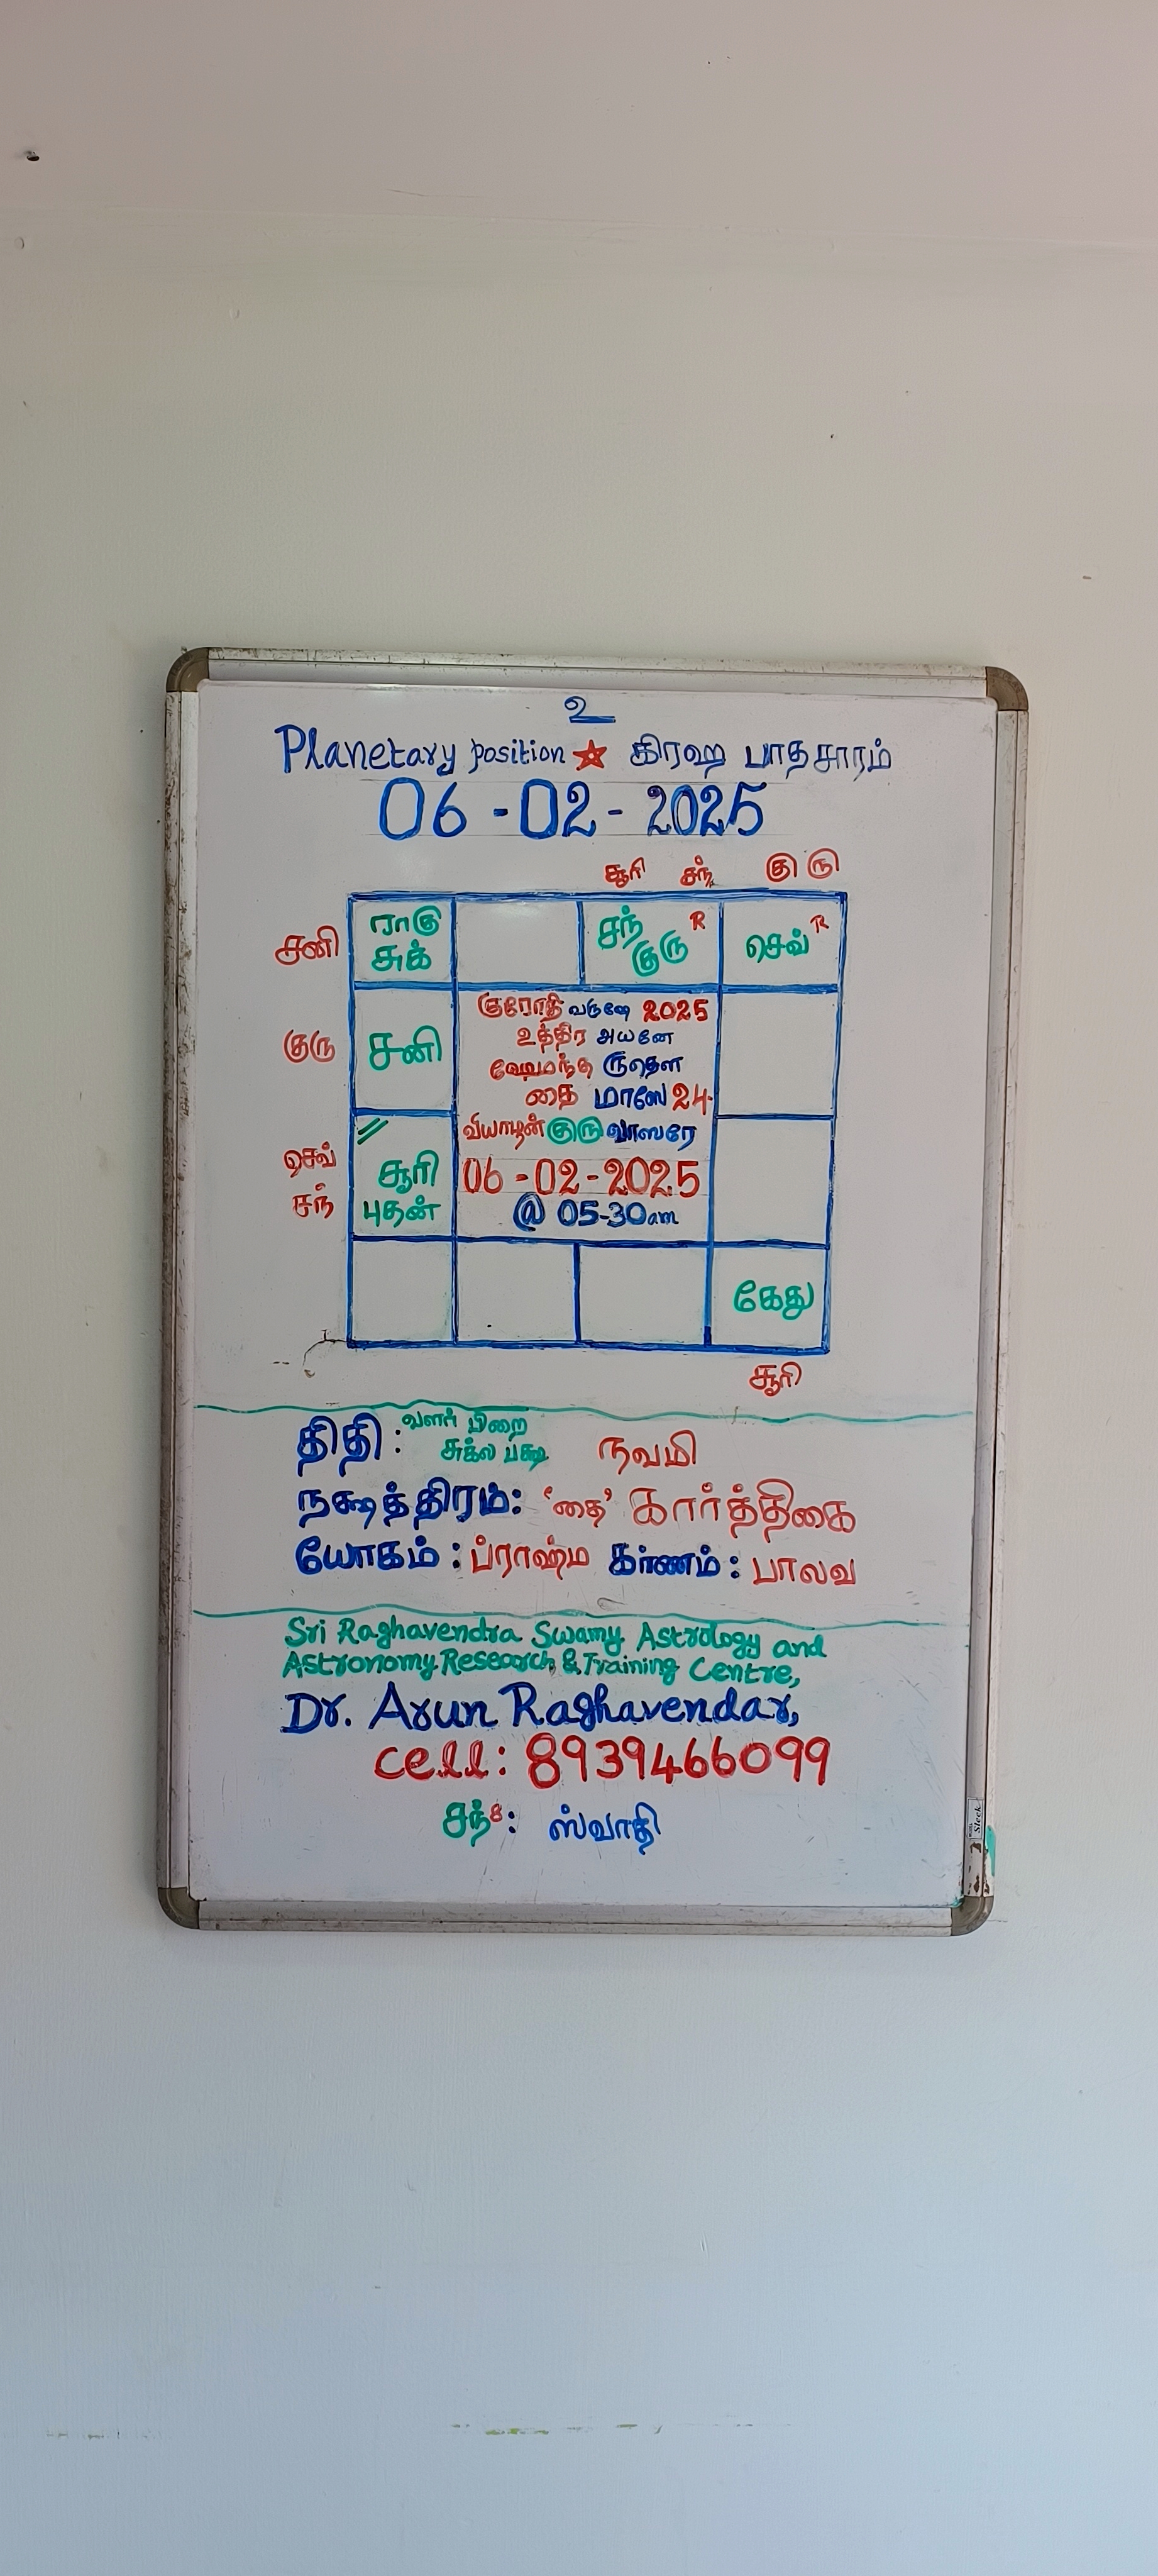 உ
Planetary position ☆ கிரஹ பாதசாரம்
06-02-2025
சூரி சந் குரு
சனி ராகு சுக் சந் குரு R செவ் R
குரு சனி
குரோதி வருஷே 2025
உத்திர அயனே
ஹேமந்த ருதௌ
தை மாஸே 24
வியாழன் குரு வாஸரே
செவ் சந் சூரி புதன்
06-02-2025
@ 05-30am
கேது
சூரி
திதி: வளர் பிறை சுக்ல பக்ஷ நவமி
நக்ஷத்திரம்: 'தை' கார்த்திகை
யோகம்: ப்ராஹ்ம கர்ணம்: பாலவ
Sri Raghavendra Swamy Astrology and
Astronomy Research & Training Centre,
Dr. Arun Raghavendar,
cell: 8939466099
சந்8: ஸ்வாதி